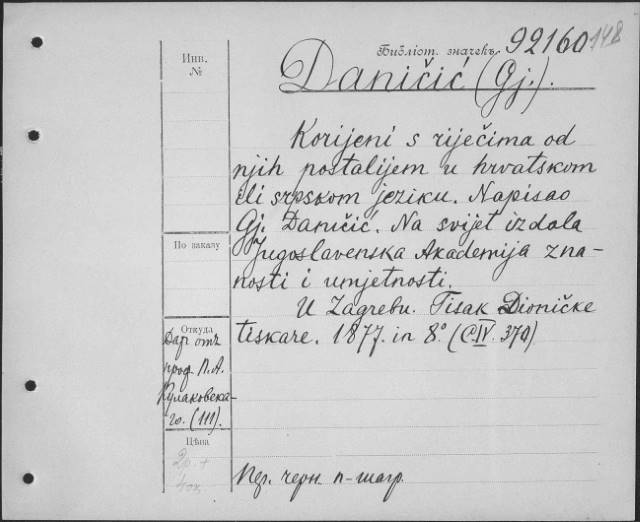 Библіот. значекъ 92160 148
Инв.
№
Daničić (Gj.).
Korijeni s riječima od
njih postalijem u hrvatskom
ili srpskom jeziku. Napisao
Gj. Daničić. Na svijet izdala
Jugoslavenska Akademija zna-
nosti i umjetnosti.
U Zagrebu. Tisak Dioničke
tiskare. 1877. in 8° (C.IV. 370)
По заказу
Откуда
Даръ отъ
проф. П. А.
Кулаковска-
го. (111).
Цѣна
2р. +
Пер. черн. п-шагр.